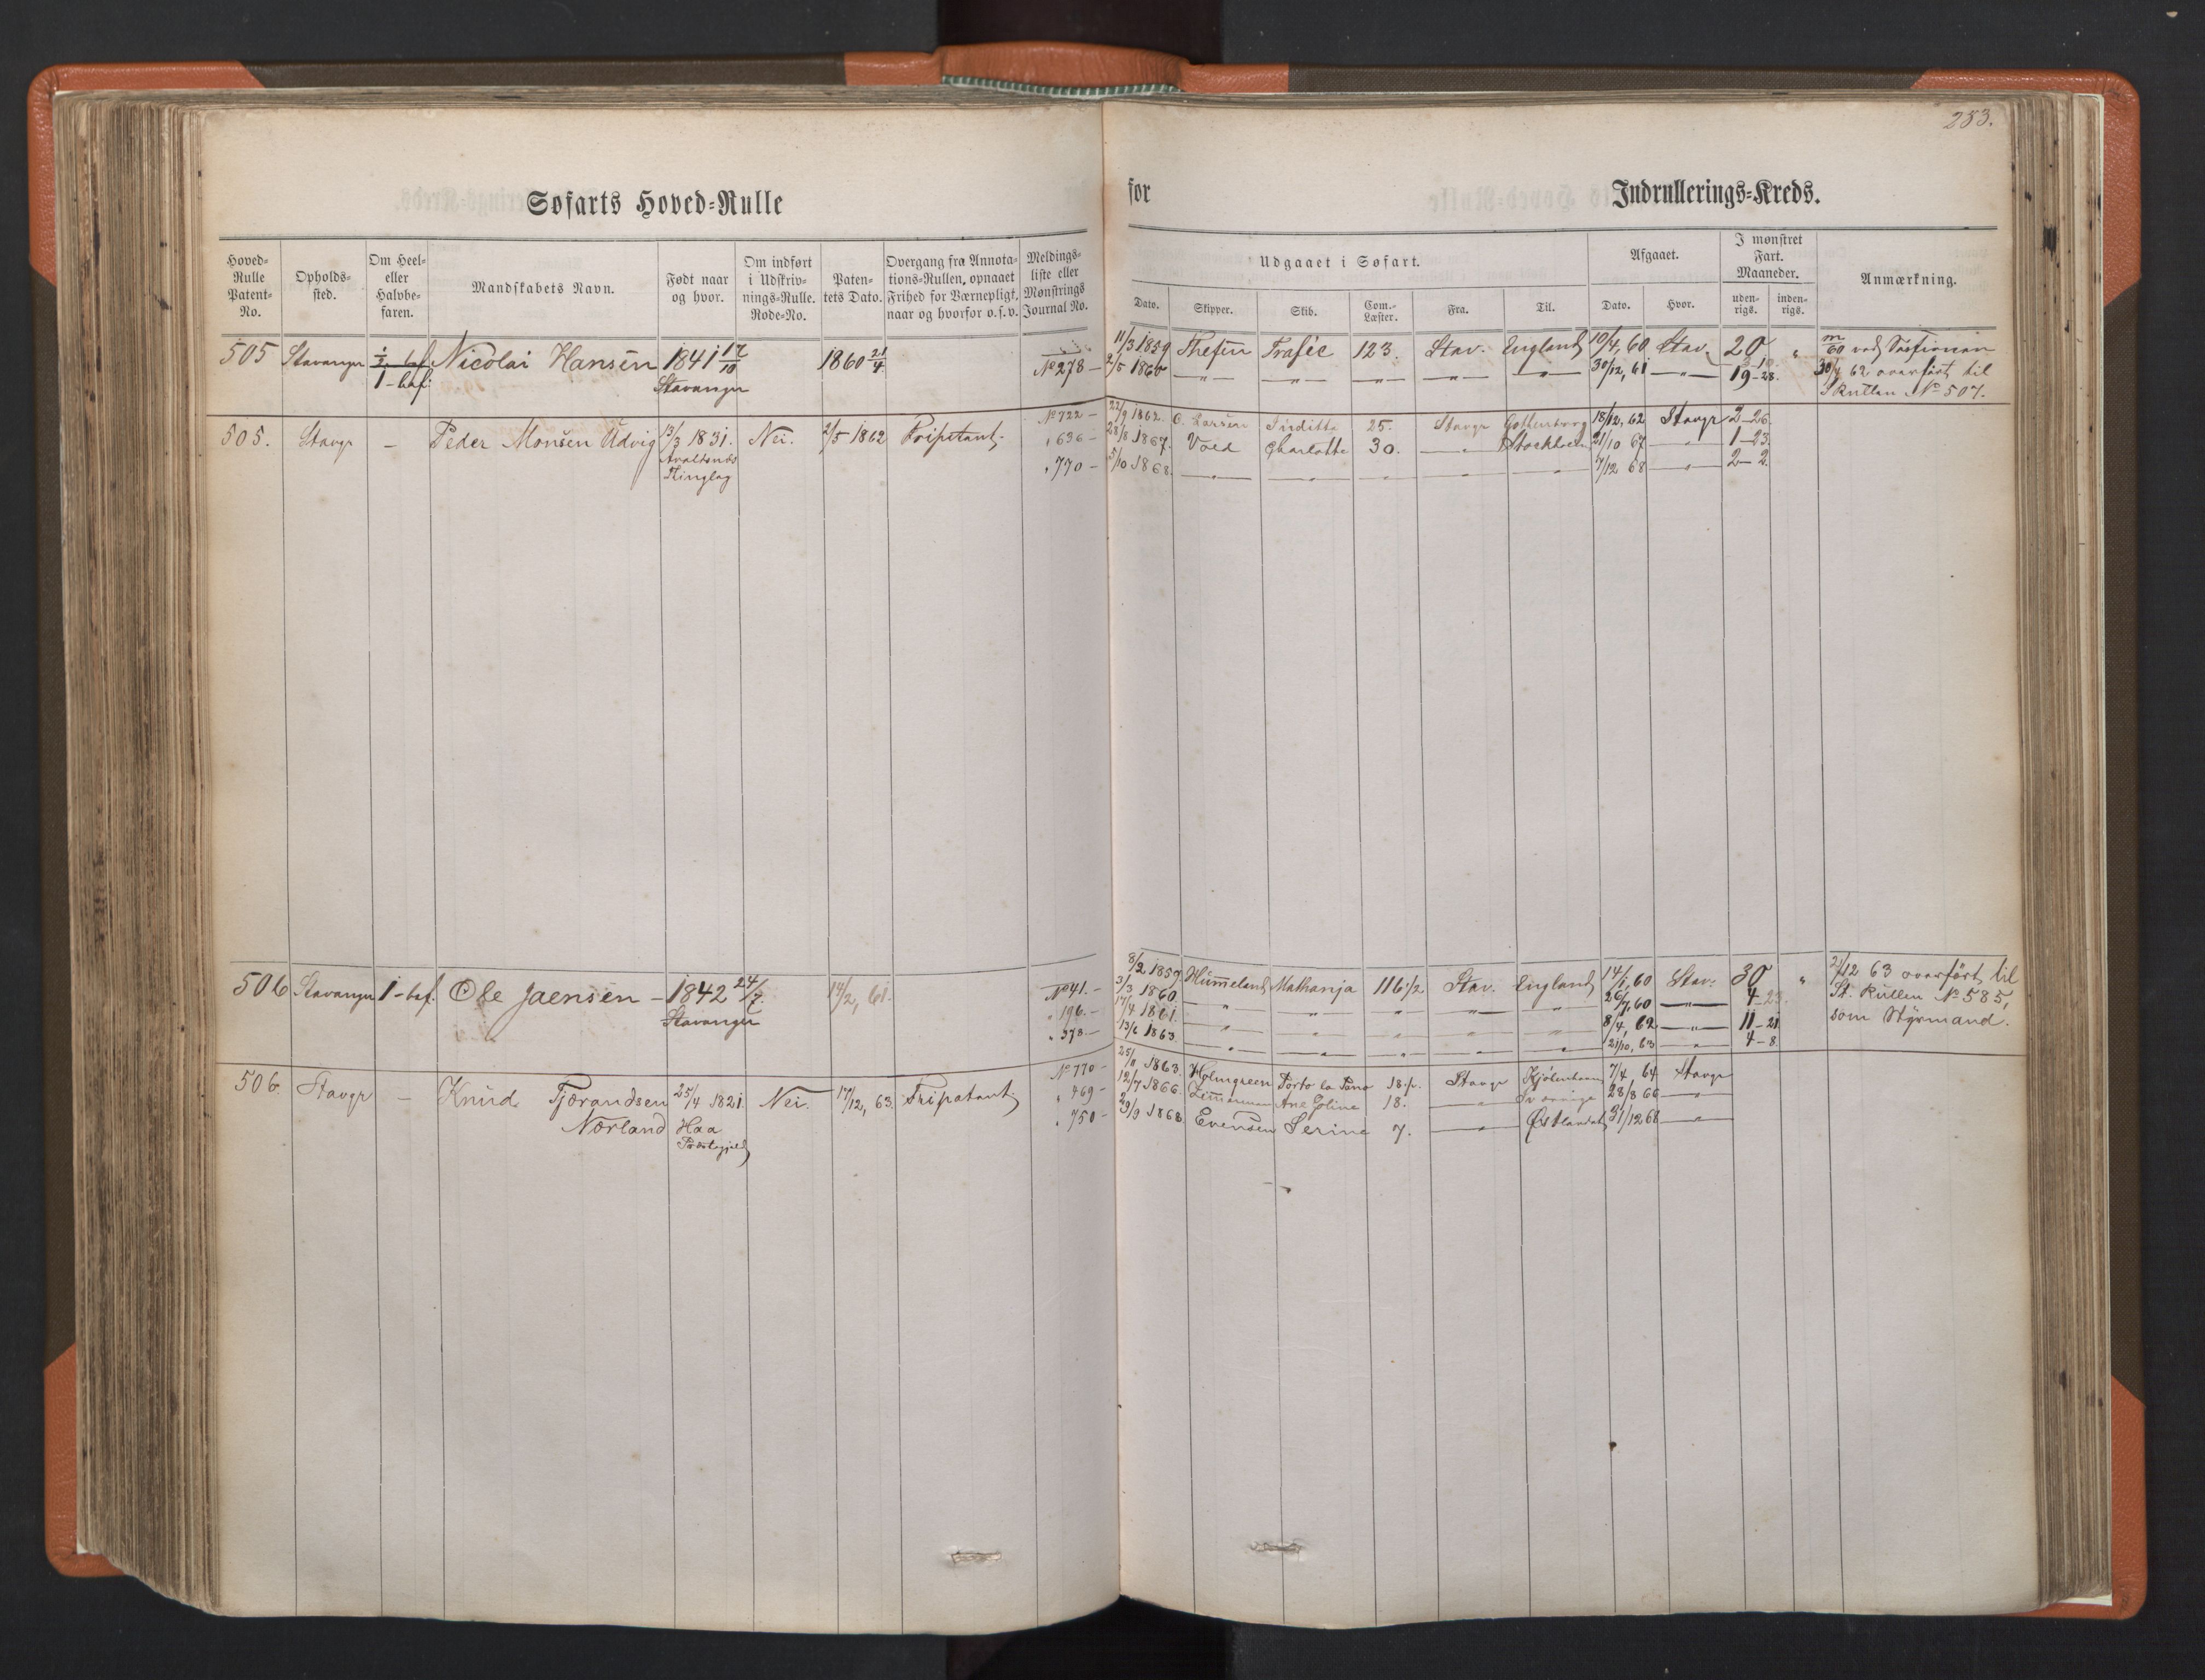 283.
Søfarts Hoved-Rulle for Indrullerings-Kreds.
Hoved-Rulle Patent-No. | Opholds-sted. | Om Heel- eller Halvbe-faren. | Mandskabets Navn. | Født naar og hvor. | Om indført i Udskriv-nings-Rulle. Rode-No. | Paten-tets Dato. | Overgang fra Annota-tions-Rullen, opnaaet Frihed for Værnepligt, naar og hvorfor o.s.v. | Meldings-liste eller Mønstrings Journal No.
Udgaaet i Søfart. | Afgaaet. | I mønstret Fart. Maaneder. | Anmærkning.
Dato. | Skipper. | Skib. | Com.-Læster. | Fra. | Til. | Dato. | Hvor. | uden-rigs. | inden-rigs.
505 Stavanger ½ bef. Nicolai Hansen 1841 17/10 1860 21/4 11/3 1859 Trafic 123. Stav. England 10/4, 60 Stav. 20 "
1-bef: Stavanger No 278 - 2/5 1860 — " — — " — — " — — " — — " — 30/12, 61 — " — 19-28. 62 overført til
Rullen No 507.
505. Stavgr — Peder Monsen Udvig 13/3 1831. Nei. 2/5 1862 Fripatent. No 722 - 22/9 1862. O. Larsen 25. Stavgr Gottenborg 18/12, 62 Stavgr 2-26.
Avaldsnæs " 636 - 28/8 1867. Voed Charlotte 30. — " — Stockholm 21/10 67 — " — 1-23.
Thinglag " 770 - 5/10 1868. — " — — " — — " — — " — — " — 7/12 68 — " — 2-2.
506 Stavanger 1-bef. Ole Jaensen - 1842 24/7. 14/2, 61. No 41. - 8/2 1859 Hummeland Mathanja 116 1/2 Stav. England 14/1, 60 Stav. 30 " 21/12 63 overført til
Stavanger " 196. - 3/3 1860. — " — — " — — " — — " — — " — 26/7, 60 — " — 4-23. St. Rullen No 585,
" 378 - 17/4 1861. — " — — " — — " — — " — — " — 8/4, 62 — " — 11-21 som Styrmand.
13/6 1863. — " — — " — — " — — " — — " — 21/10, 63 — " — 4-8.
506. Stavgr — Knud Tjørandsen 25/4 1821. Nei. 17/12, 63. Fripatent. No 770 - 25/11 1863. Holmgreen 18 Stavgr Kjøbenhavn 7/4 64 Stavgr
Nærland Haa " 469 - 12/7 1866. Ane Eline 18. — " — Sverrige 28/8 66 — " —
Præstegjeld " 750 - 29/9 1868. Evensen Serine 7. — " — Østlandet 31/12 68 — " —